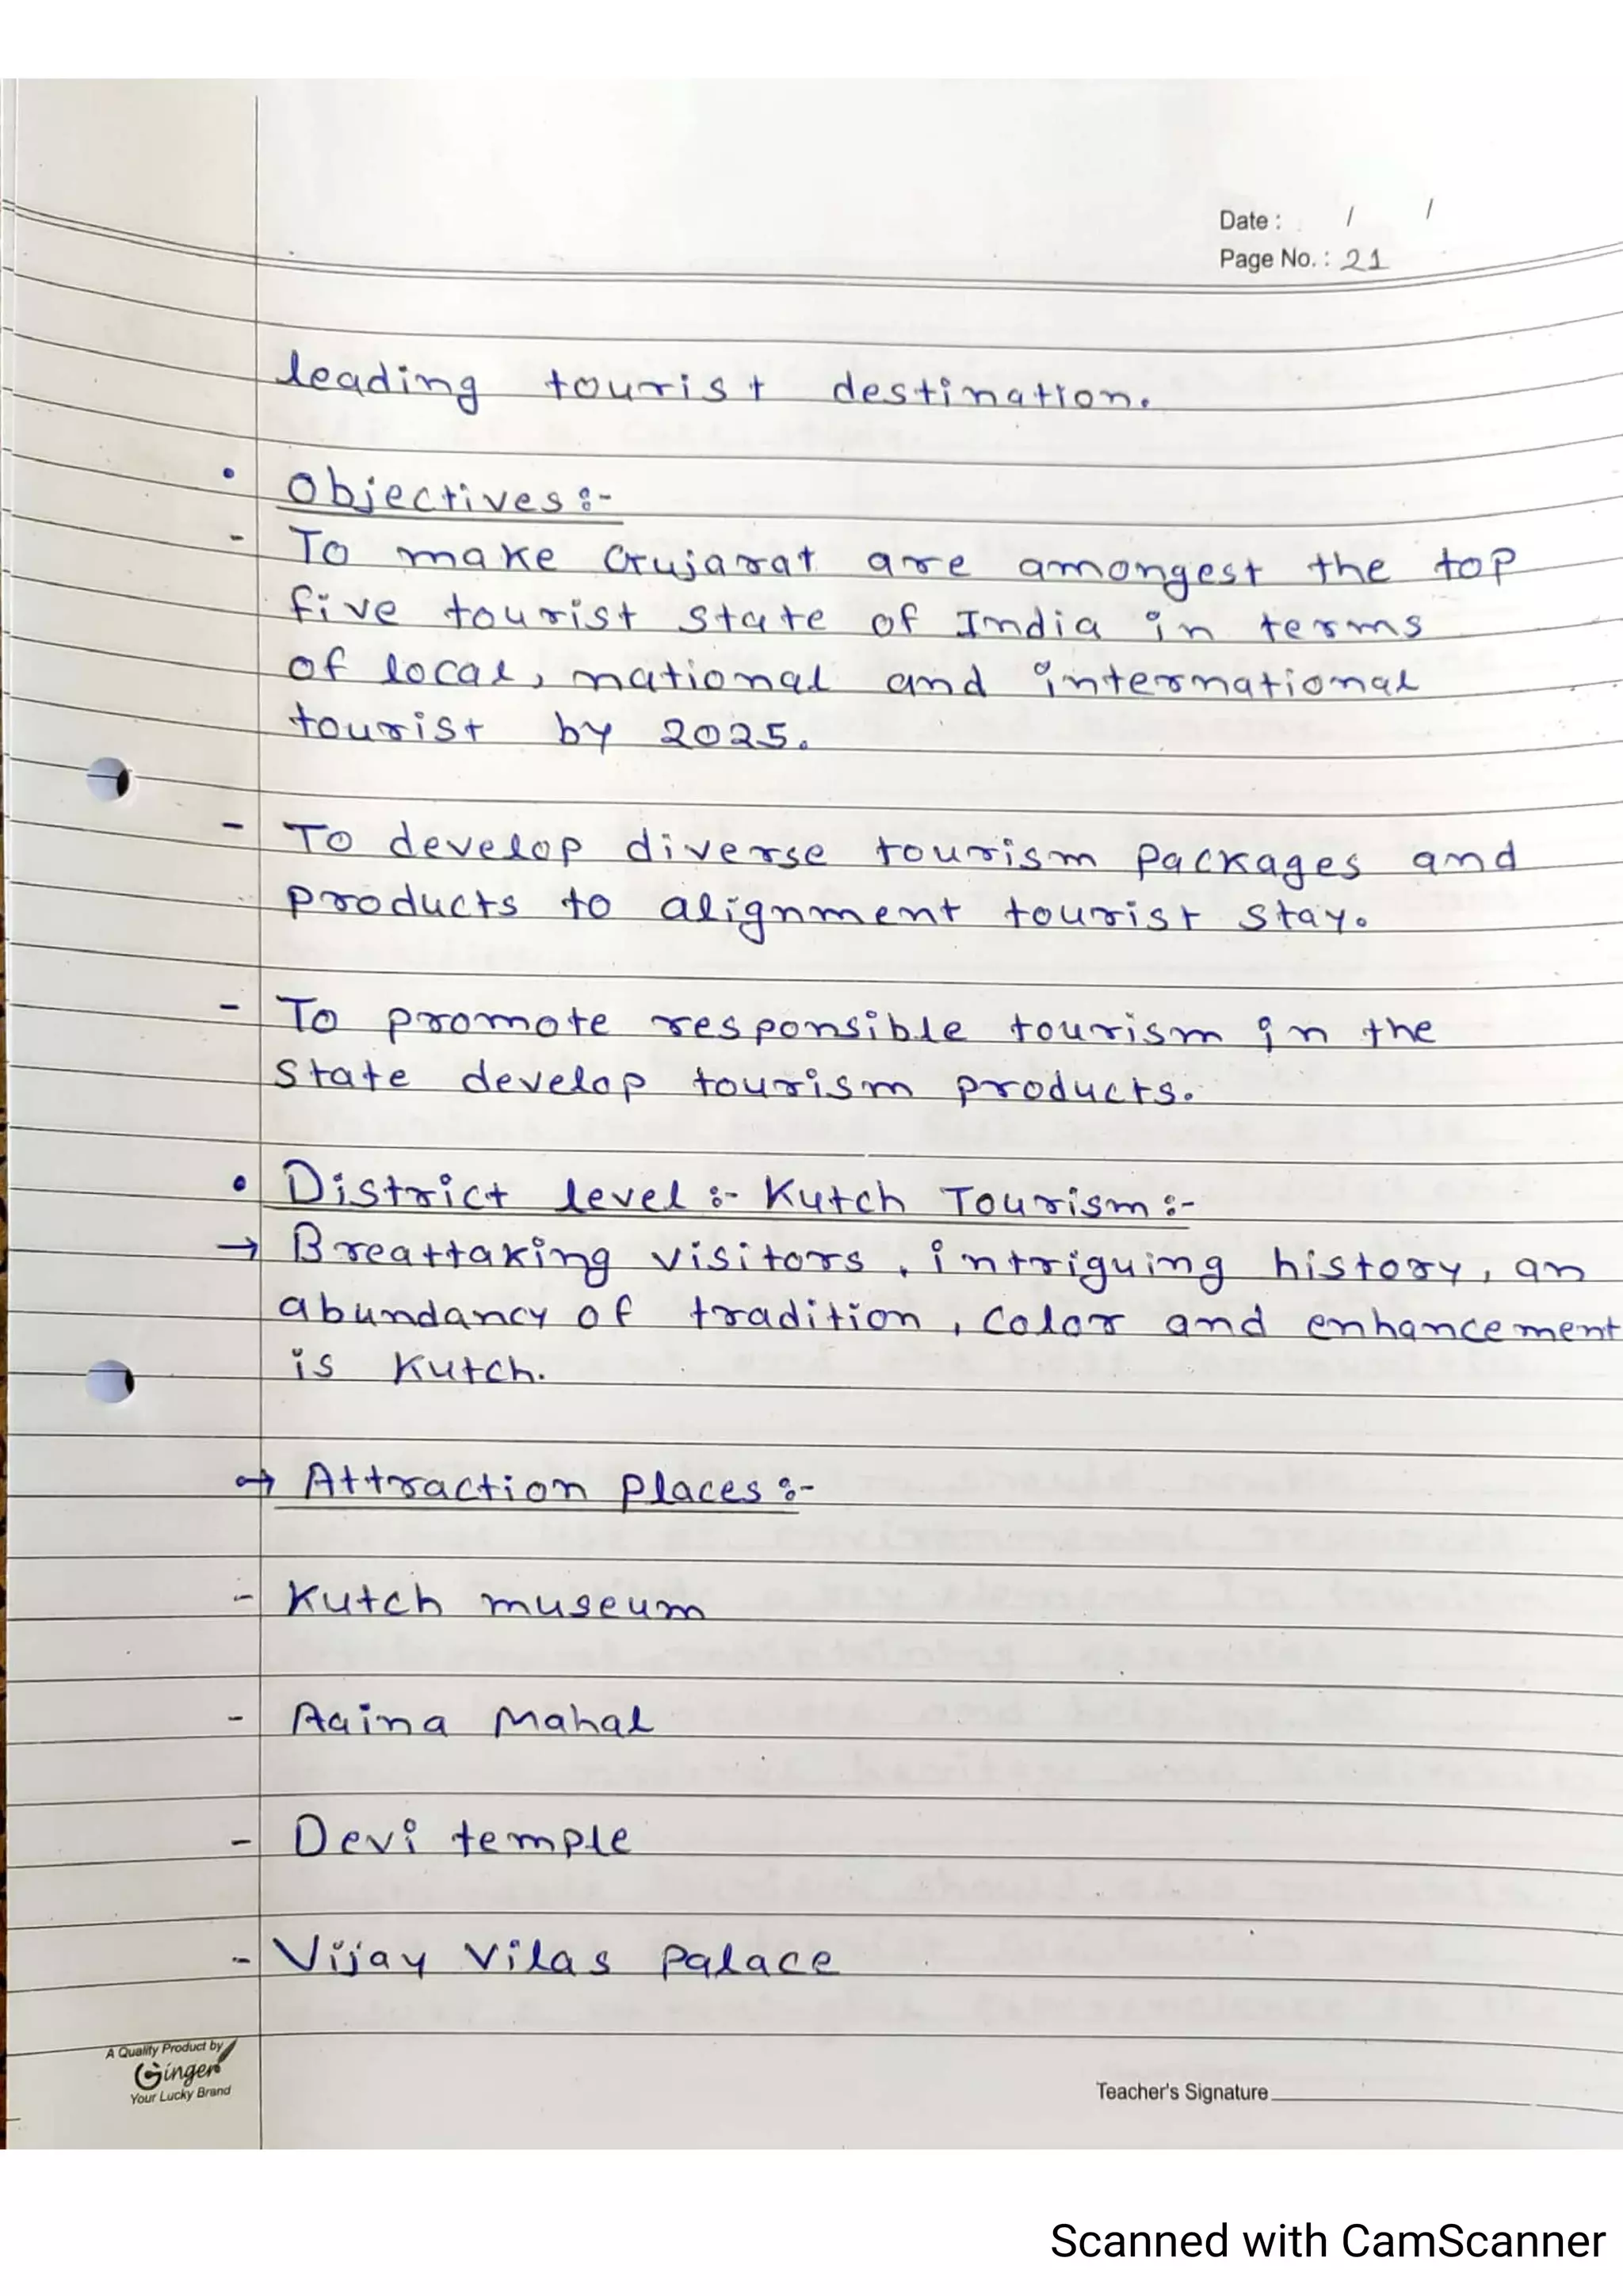 Date : / /
Page No. : 21
leading tourist destination.
• Objectives :-
- To make Gujarat are amongest the top
five tourist state of India in terms
of local, national and international
tourist by 2025.
- To develop diverse tourism packages and
products to alignment tourist stay.
- To promote responsible tourism in the
state develop tourism products.
• District level :- Kutch Tourism :-
→ Breattaking visitors, intriguing history, an
abundancy of tradition, color and enhancement
is Kutch.
→ Attraction places :-
- Kutch museum
- Aaina Mahal
- Devi temple
- Vijay Vilas palace
A Quality Product by
Ginger
Your Lucky Brand
Teacher's Signature
Scanned with CamScanner